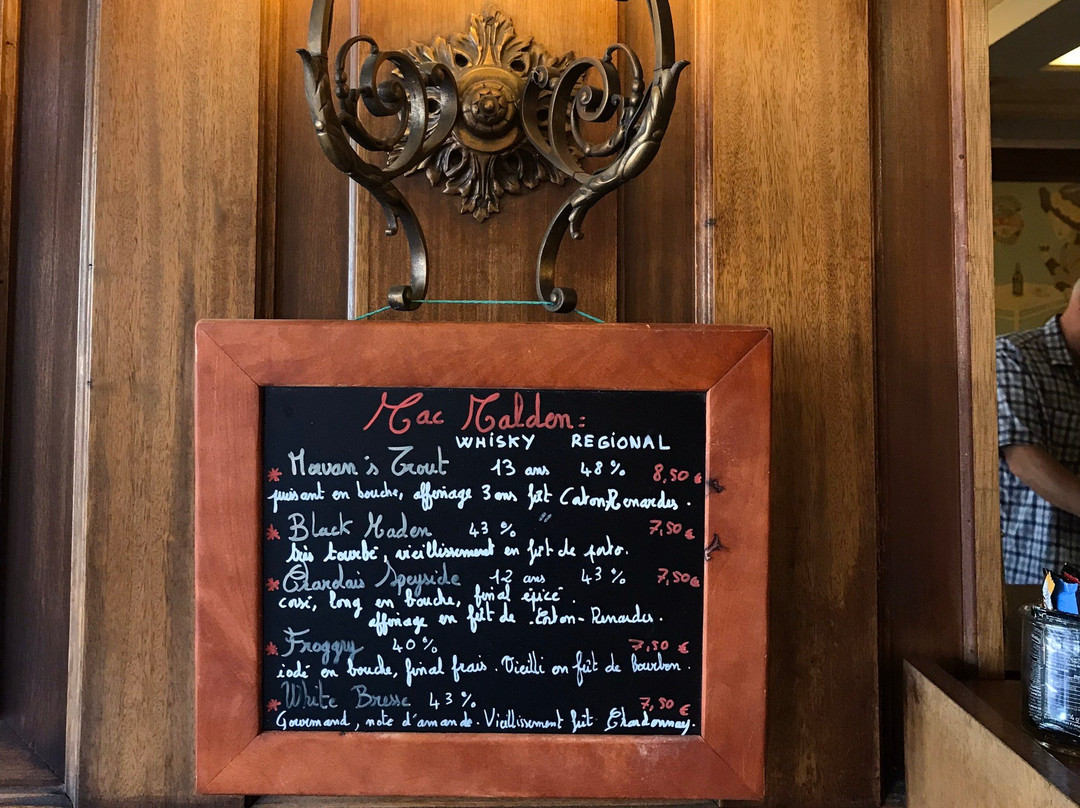 Mac Malden:
WHISKY REGIONAL
* Morvan's Trout 13 ans 48% 8,50 €
puissant en bouche, affinage 3 ans fût Corton-Renardes.
* Black Maden 43% " 7,50 €
très tourbé, vieillissement en fût de porto.
* Charolais Speyside 12 ans 43% 7,50 €
corsé, long en bouche, final épicé
affinage en fût de Corton-Renardes.
* Froggry 40% 7,50 €
iodé en bouche, final frais. Vieilli en fût de Bourbon.
* White Bresse 43% 7,50 €
Gourmand, note d'amande. Vieillissement fût Chardonnay.